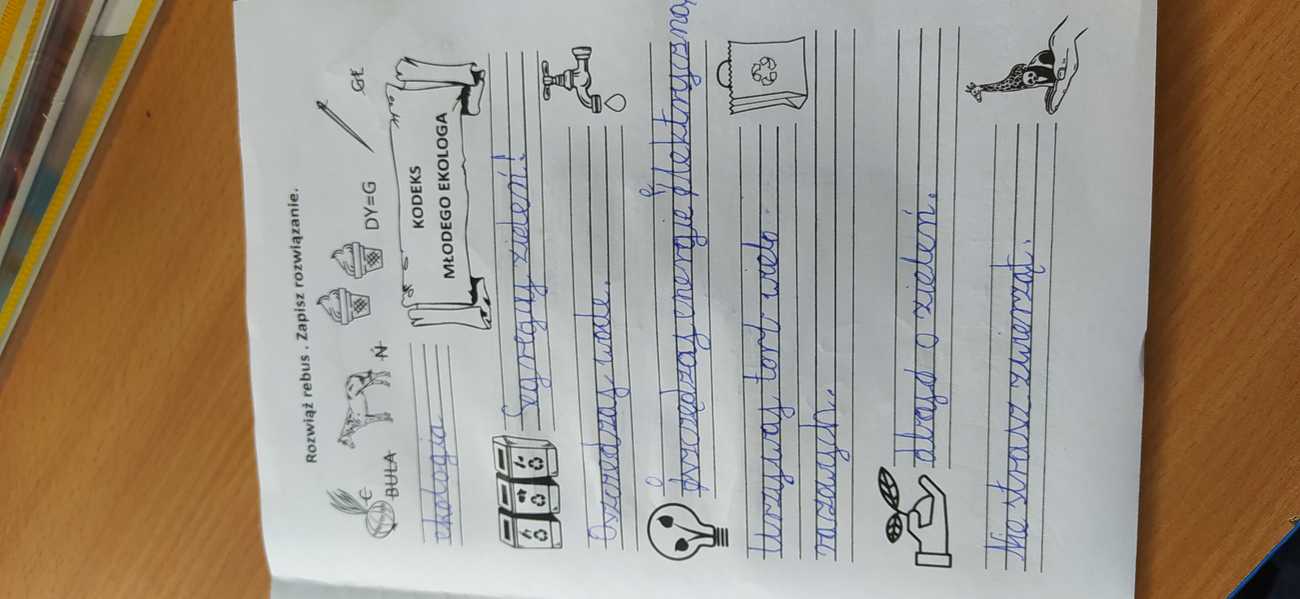 Rozwiąż rebus. Zapisz rozwiązanie.
C
BUŁA
Ń
DY=G
GŁ
ekologia
KODEKS
MŁODEGO EKOLOGA
Segreguj zieleń!
Oszczędzaj wode.
oszczędzaj energie elektryczną
Urzywaj torb wielo
razowych.
dbaj o zieleń.
Nie strasz zwierząt.